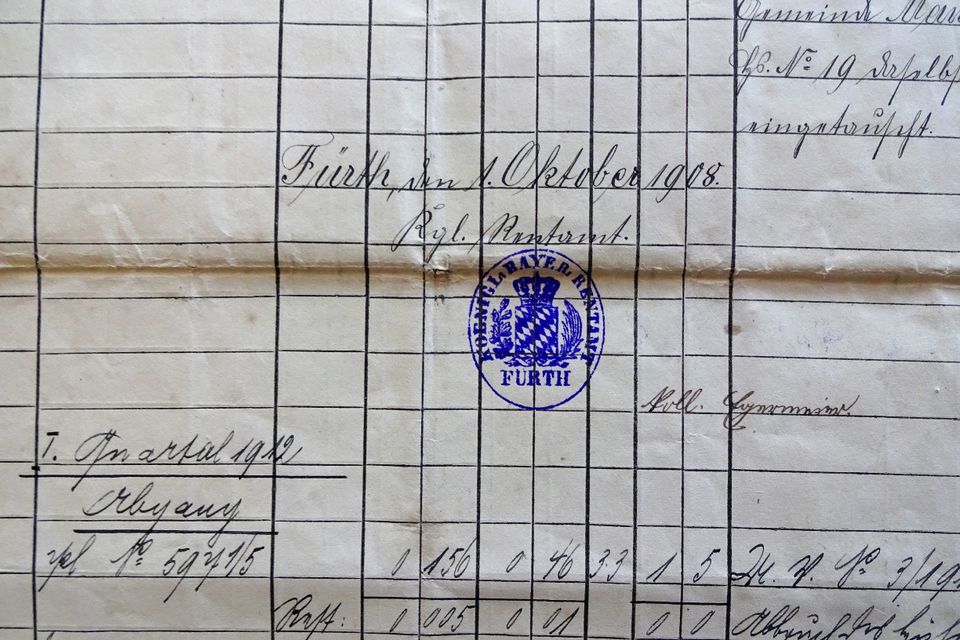 Gemeinde
Hs. No 19 daselbst
eingetauscht.
Fürth, den 1. Oktober 1908.
Kgl. Rentamt.
KOENIGL. BAYER. RENTAMT
FÜRTH
Egermeier.
I. Quartal 1912
Abgang
Pl No 597 1/5 0 156 0 46 33 1 5 No 3/19
Rest: 0 005 0 01 0 0